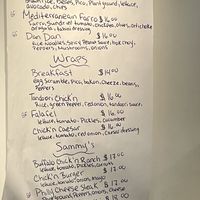 rice, bean, Pico, Plant ground, lettuce,
avocado, chips
GF Mediterranean Farro $16.00
Farro, tomato, chickpeas, olives, artichoke
arugula, balsamic dressing
GF Dan Dan $16.00
Rice Noodles, Spicy Peanut Sauce, bok choy,
Peppers, Mushrooms, onions
Wraps
Breakfast $14.00
Egg Scramble, Pico, bacon, Cheese, beans,
Peppers
Tandoori Chick'n $16.00
Rice, green pepper, red onion, tandoori sauce
GF Falafel $16.00
lettuce, tomato, Pickles, cucumber
Chick'n Caesar $16.00
lettuce, tomato, red onion, Caesar dressing
Sammy's
Buffalo Chick'n Ranch $17.00
lettuce, tomato, pickles,
Chick'n Burger $17.00
lettuce, tomato, onion, mayo
GF Philly Cheese Steak $17.00
Peppers, onions, cheese
$17.00